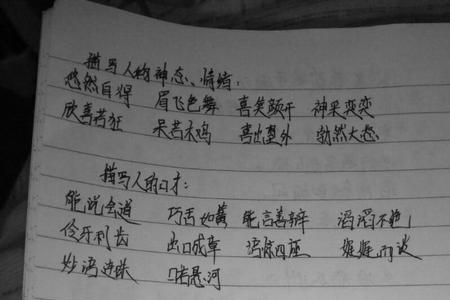 描写人物神态、情绪:
悠然自得 眉飞色舞 喜笑颜开 神采奕奕
欣喜若狂 呆若木鸡 喜出望外 勃然大怒
描写人的口才:
能说会道 巧舌如簧 能言善辩 滔滔不绝
伶牙利齿 出口成章 语惊四座 娓娓而谈
妙语连珠 口若悬河